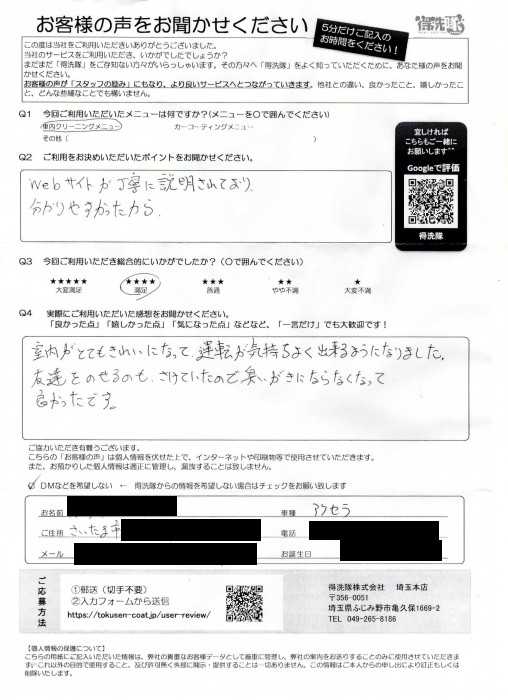 お客様の声をお聞かせください
5分だけご記入の
お時間をください!
得洗隊
この度は当社をご利用いただきありがとうございました。
当社のサービスをご利用いただき、いかがでしたでしょうか?
まだまだ「得洗隊」をご存知ない方がいらっしゃいます。その方々へ「得洗隊」をよく知っていただくために、あなた様の声をお聞
かせください。
お客様の声が「スタッフの励み」にもなり、より良いサービスへとつながっていきます。他社との違い、良かったこと、嬉しかったこ
と、どんな些細なことでも構いません。
Q1 今回ご利用いただいたメニューは何ですか?(メニューを〇で囲んでください)
車内クリーニングメニュー カーコーティングメニュー
その他( )
宜しければ
こちらもご一緒に
お願いします^^
Googleで評価
得洗隊
Q2 ご利用をお決めいただいたポイントをお聞かせください。
Webサイトが丁寧に説明されており、
分かりやすかったから
Q3 今回ご利用いただき総合的にいかがでしたか?(〇で囲んでください)
★★★★★ ★★★★ ★★★ ★★ ★
大変満足 満足 普通 やや不満 大変不満
Q4 実際にご利用いただいた感想をお聞かせください。
「良かった点」「嬉しかった点」「気になった点」などなど、「一言だけ」でも大歓迎です!
室内がとてもきれいになって、運転が気持ちよく出来るようになりました。
友達をのせるのも、さけていたので臭いがきにならなくなって
良かったです。
ご協力いただき有難うございます。
こちらの「お客様の声」は個人情報を伏せた上で、インターネットや印刷物等で使用させていただきます。
また、お預かりした個人情報は適正に管理し、漏洩することは致しません。
DMなどを希望しない ← 得洗隊からの情報を希望しない場合はチェックをお願い致します
お名前 車種 アクセラ
ご住所 さいたま市 電話
メール お誕生日
ご応募方法
①郵送(切手不要)
②入力フォームから送信
https://tokusen-coat.jp/user-review/
得洗隊株式会社 埼玉本店
〒356-0051
埼玉県ふじみ野市亀久保1669-2
TEL 049-265-8186
【個人情報の保護について】
こちらの用紙にご記入いただいた情報は、弊社の貴重なお客様データとして厳重に管理し、弊社の案内をお送りすることのみに使用させていただきま
す。これ以外の目的で使用すること、及び許可無く外部に開示・提供することは一切ありません。この情報はご本人からの申し出により訂正もしくは
削除いたします。